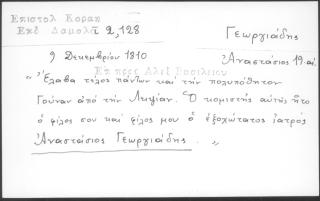 Επιστολ Κοραη
Επδ Δαμαλᾶ Ι 2,128
Γεωργιάδης
Ἀναστάσιος 19 αἰ.
9 Δεκεμβρίου 1810
Επ προς Αλεξ Βασιλειου
" Ἔλαβα τέλος πάντων καὶ τὴν πολυπόθητον
Γούναν ἀπὸ τὴν Λειψίαν. Ὁ κομιστὴς αὐτῆς ἦτο
ὁ φίλος σου καὶ φίλος μου ὁ ἐξοχώτατος ἰατρὸς
Ἀναστάσιος Γεωργιάδης . "